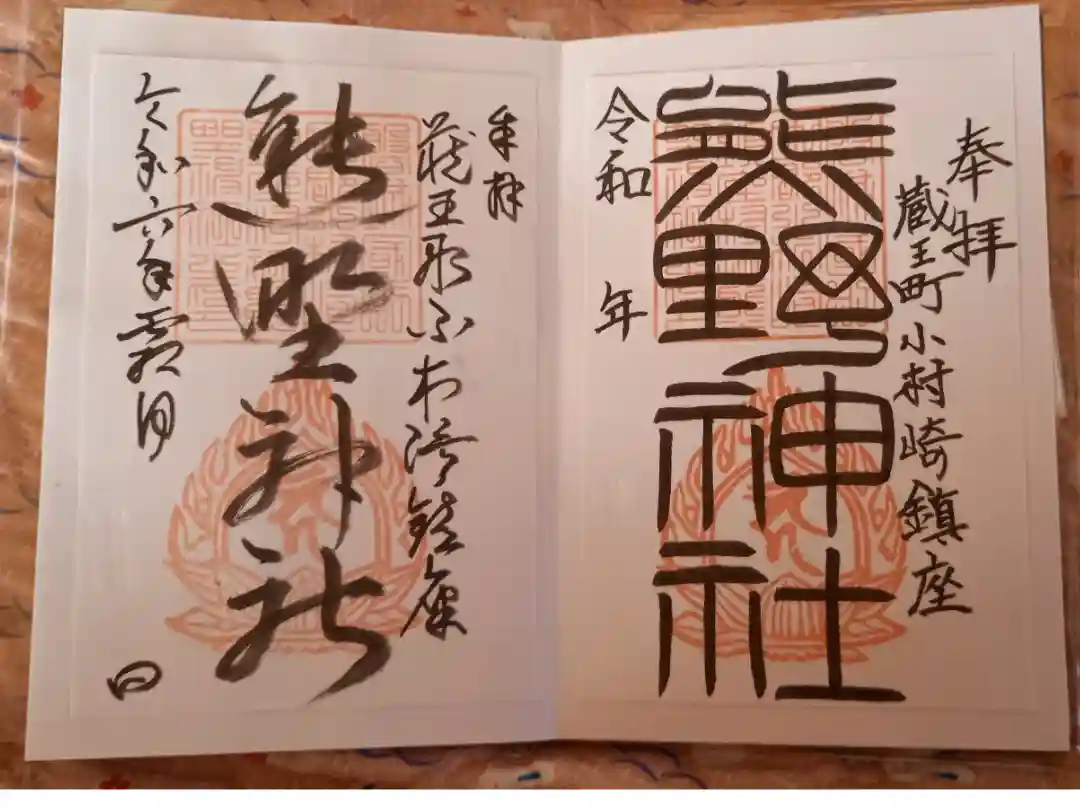 奉拝
蔵王町小村崎鎮座
熊野神社
令和 年
奉拝
蔵王町小村崎鎮座
熊野神社
令和六年霜月 日